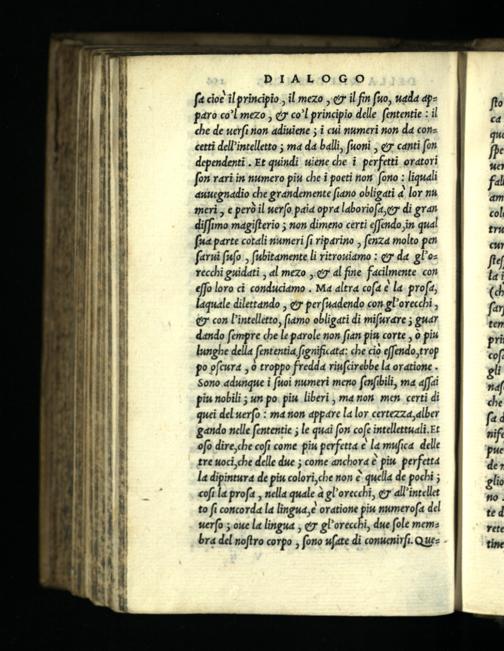 DIALOGO
sa cioè il principio, il mezo, & il fin suo, uada ap=
paro co'l mezo, & co'l principio delle sententie: il
che de uersi non adiuiene; i cui numeri non da con=
cetti dell'intelletto; ma da balli, suoni, & canti son
dependenti. Et quindi uiene che i perfetti oratori
son rari in numero piu che i poeti non sono: liquali
auuegnadio che grandemente siano obligati à lor nu
meri, e però il uerso paia opra laboriosa, & di gran
dissimo magisterio; non dimeno certi essendo, in qual
sua parte cotali numeri si riparino, senza molto pen
sarui suso, subitamente li ritrouiamo: & da gl'o=
recchi guidati, al mezo, & al fine facilmente con
esso loro ci conduciamo. Ma altra cosa è la prosa,
laquale dilettando, & persuadendo con gl'orecchi,
& con l'intelletto, siamo obligati di misurare; guar
dando sempre che le parole non sian piu corte, ò piu
lunghe della sententia significata: che ciò essendo, trop
po oscura, ò troppo fredda riuscirebbe la oratione.
Sono adunque i suoi numeri meno sensibili, ma assai
piu nobili; un po piu liberi, ma non men certi di
quei del uerso: ma non appare la lor certezza, alber
gando nelle sententie; le quai son cose intellettuali. Et
oso dire, che cosi come piu perfetta è la musica delle
tre uoci, che delle due; come anchora è piu perfetta
la dipintura de piu colori, che non è quella de pochi;
cosi la prosa, nella quale à gl'orecchi, & all'intellet
to si concorda la lingua, è oratione piu numerosa del
uerso; oue la lingua, & gl'orecchi, due sole mem=
bra del nostro corpo, sono usate di conuenirsi. Que=